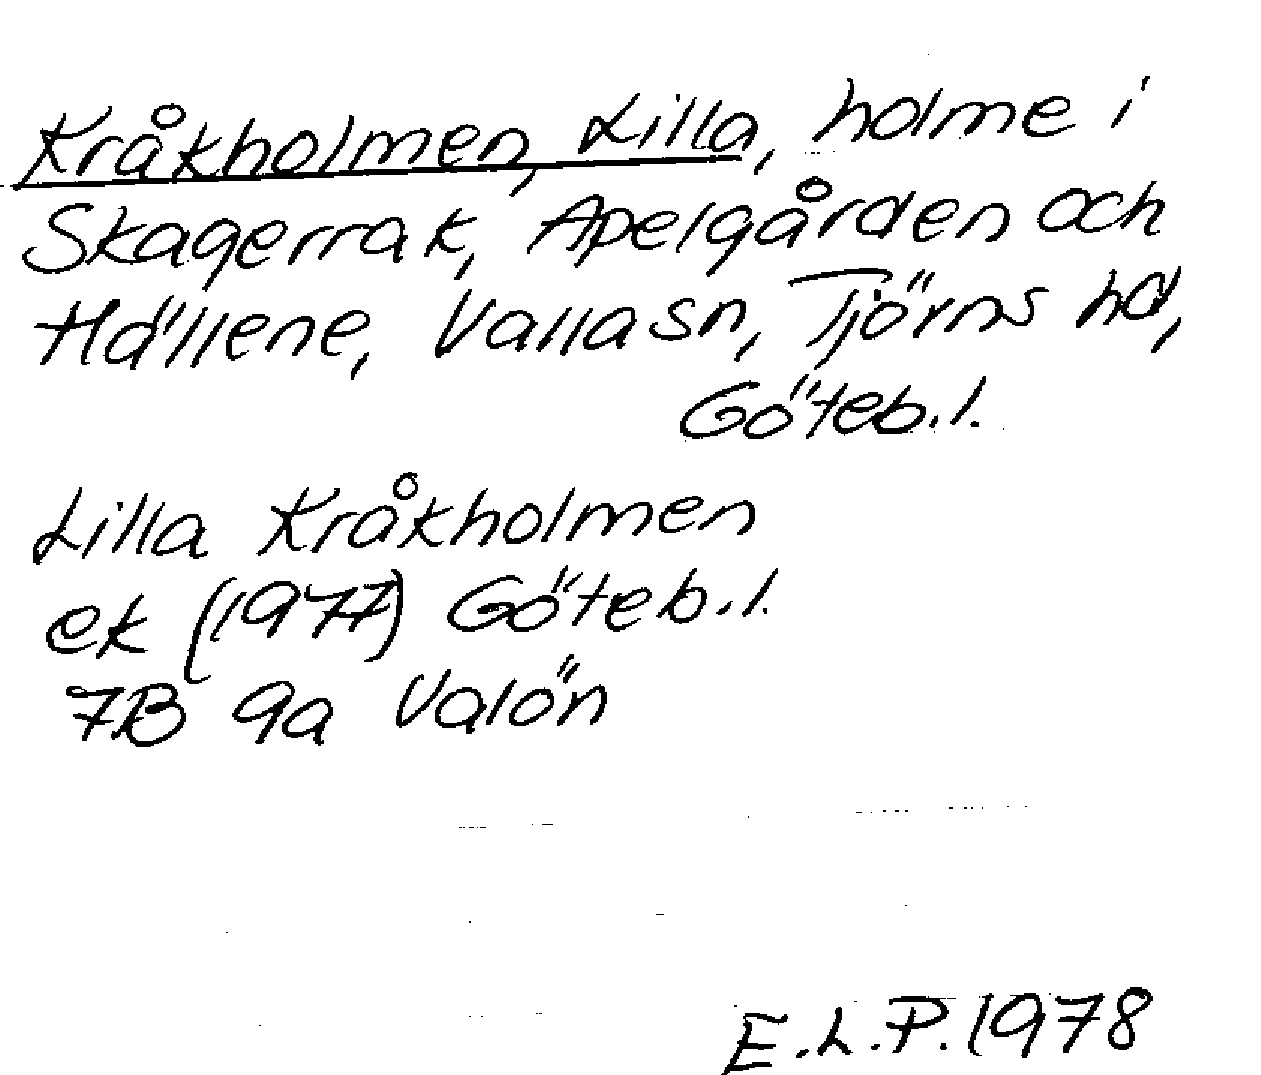 Kråkholmen, Lilla, holme i
Skagerrak, Apelgården och
Hällene, Valla sn, Tjörns hd,
Göteb.l.
Lilla Kråkholmen
ek (1977) Göteb.l.
7B 9a Valön
E.L.P. 1978